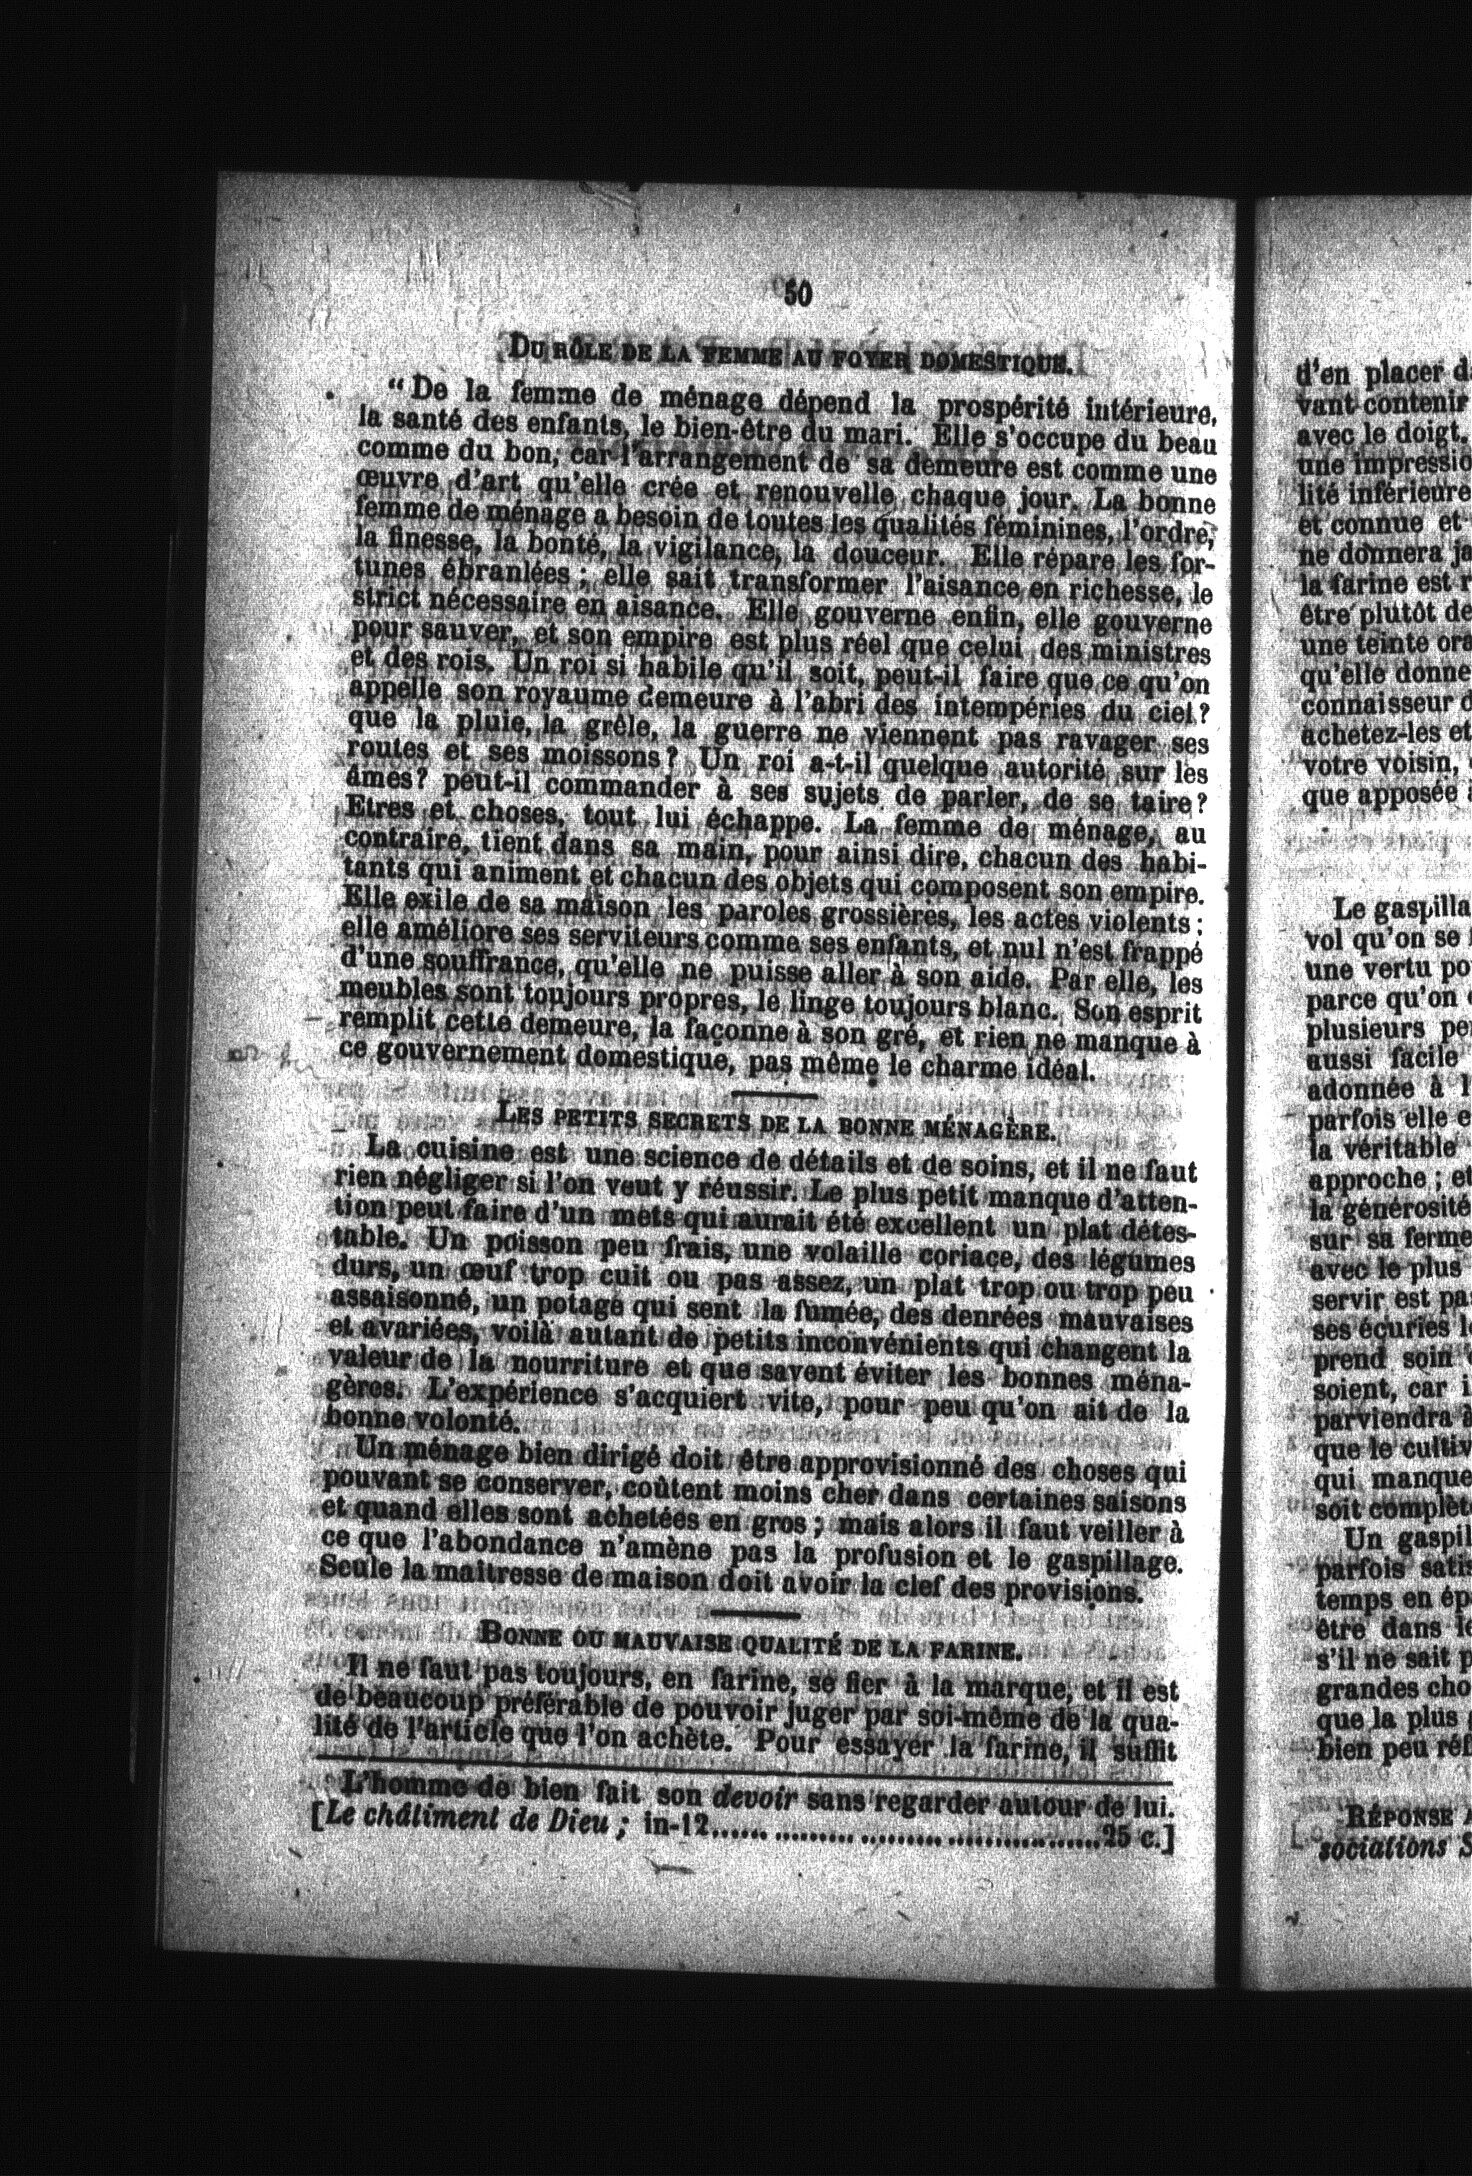 50
DU RÔLE DE LA FEMME AU FOYER DOMESTIQUE.
“De la femme de ménage dépend la prospérité intérieure,
la santé des enfants, le bien-être du mari. Elle s'occupe du beau
comme du bon, car l'arrangement de sa demeure est comme une
œuvre d'art qu'elle crée et renouvelle chaque jour. La bonne
femme de ménage a besoin de toutes les qualités féminines, l'ordre,
la finesse, la bonté, la vigilance, la douceur. Elle répare les for-
tunes ébranlées ; elle sait transformer l'aisance en richesse, le
strict nécessaire en aisance. Elle gouverne enfin, elle gouverne
pour sauver, et son empire est plus réel que celui des ministres
et des rois. Un roi si habile qu'il soit, peut-il faire que ce qu'on
appelle son royaume demeure à l'abri des intempéries du ciel ?
que la pluie, la grêle, la guerre ne viennent pas ravager ses
routes et ses moissons ? Un roi a-t-il quelque autorité sur les
âmes ? peut-il commander à ses sujets de parler, de se taire ?
Etres et choses, tout lui échappe. La femme de ménage, au
contraire, tient dans sa main, pour ainsi dire, chacun des habi-
tants qui animent et chacun des objets qui composent son empire.
Elle exile de sa maison les paroles grossières, les actes violents ;
elle améliore ses serviteurs comme ses enfants, et nul n'est frappé
d'une souffrance, qu'elle ne puisse aller à son aide. Par elle, les
meubles sont toujours propres, le linge toujours blanc. Son esprit
remplit cette demeure, la façonne à son gré, et rien ne manque à
ce gouvernement domestique, pas même le charme idéal.
LES PETITS SECRETS DE LA BONNE MÉNAGÈRE.
La cuisine est une science de détails et de soins, et il ne faut
rien négliger si l'on veut y réussir. Le plus petit manque d'atten-
tion peut faire d'un mets qui aurait été excellent un plat détes-
table. Un poisson peu frais, une volaille coriace, des légumes
durs, un œuf trop cuit ou pas assez, un plat trop ou trop peu
assaisonné, un potage qui sent la fumée, des denrées mauvaises
et avariées, voilà autant de petits inconvénients qui changent la
valeur de la nourriture et que savent éviter les bonnes ména-
gères. L'expérience s'acquiert vite, pour peu qu'on ait de la
bonne volonté.
Un ménage bien dirigé doit être approvisionné des choses qui
pouvant se conserver, coûtent moins cher dans certaines saisons
et quand elles sont achetées en gros ; mais alors il faut veiller à
ce que l'abondance n'amène pas la profusion et le gaspillage.
Seule la maitresse de maison doit avoir la clef des provisions.
BONNE OU MAUVAISE QUALITÉ DE LA FARINE.
Il ne faut pas toujours, en farine, se fier à la marque, et il est
de beaucoup préférable de pouvoir juger par soi-même de la qua-
lité de l'article que l'on achète. Pour essayer la farine, il suffit
L'homme de bien fait son devoir sans regarder autour de lui.
[Le châtiment de Dieu ; in-12...... ......... ......... .................25 c.]
d'en placer
vant contenir
avec le doigt.
une impressio
lité inférieure
et connue et
ne donnera
la farine est
être plutôt de
une teinte
qu'elle donne
connaisseur
achetez-les et
votre voisin,
que apposée
Le gaspilla
vol qu'on se
une vertu
parce qu'on
plusieurs
aussi facile
adonnée à
parfois elle
la véritable
approche ; et
la générosité
sur sa ferme
avec le plus
servir est
ses écuries
prend soin
soient, car
parviendra
que le cultiv
qui manque
soit complèt
Un gaspil
parfois
temps en
être dans
s'il ne sait
grandes cho
que la plus
bien peu
RÉPONSE
sociations